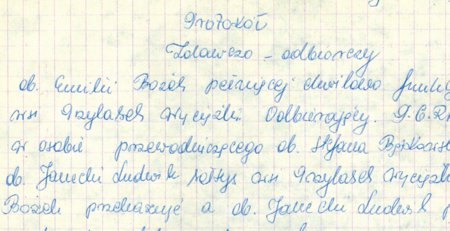 Protokół
Zdawczo - odbiorczy
ob. Emilii Bozek pełniącej chwilowo funk
wsi Przylasek Wyciąski Odbierający. P.G.R
w osobie przewodniczącego ob. Stefana
ob. Janecki Ludwik sołtys wsi Przylasek Wyciąski
Bozek przekazuje a ob. Janecki Ludwik p